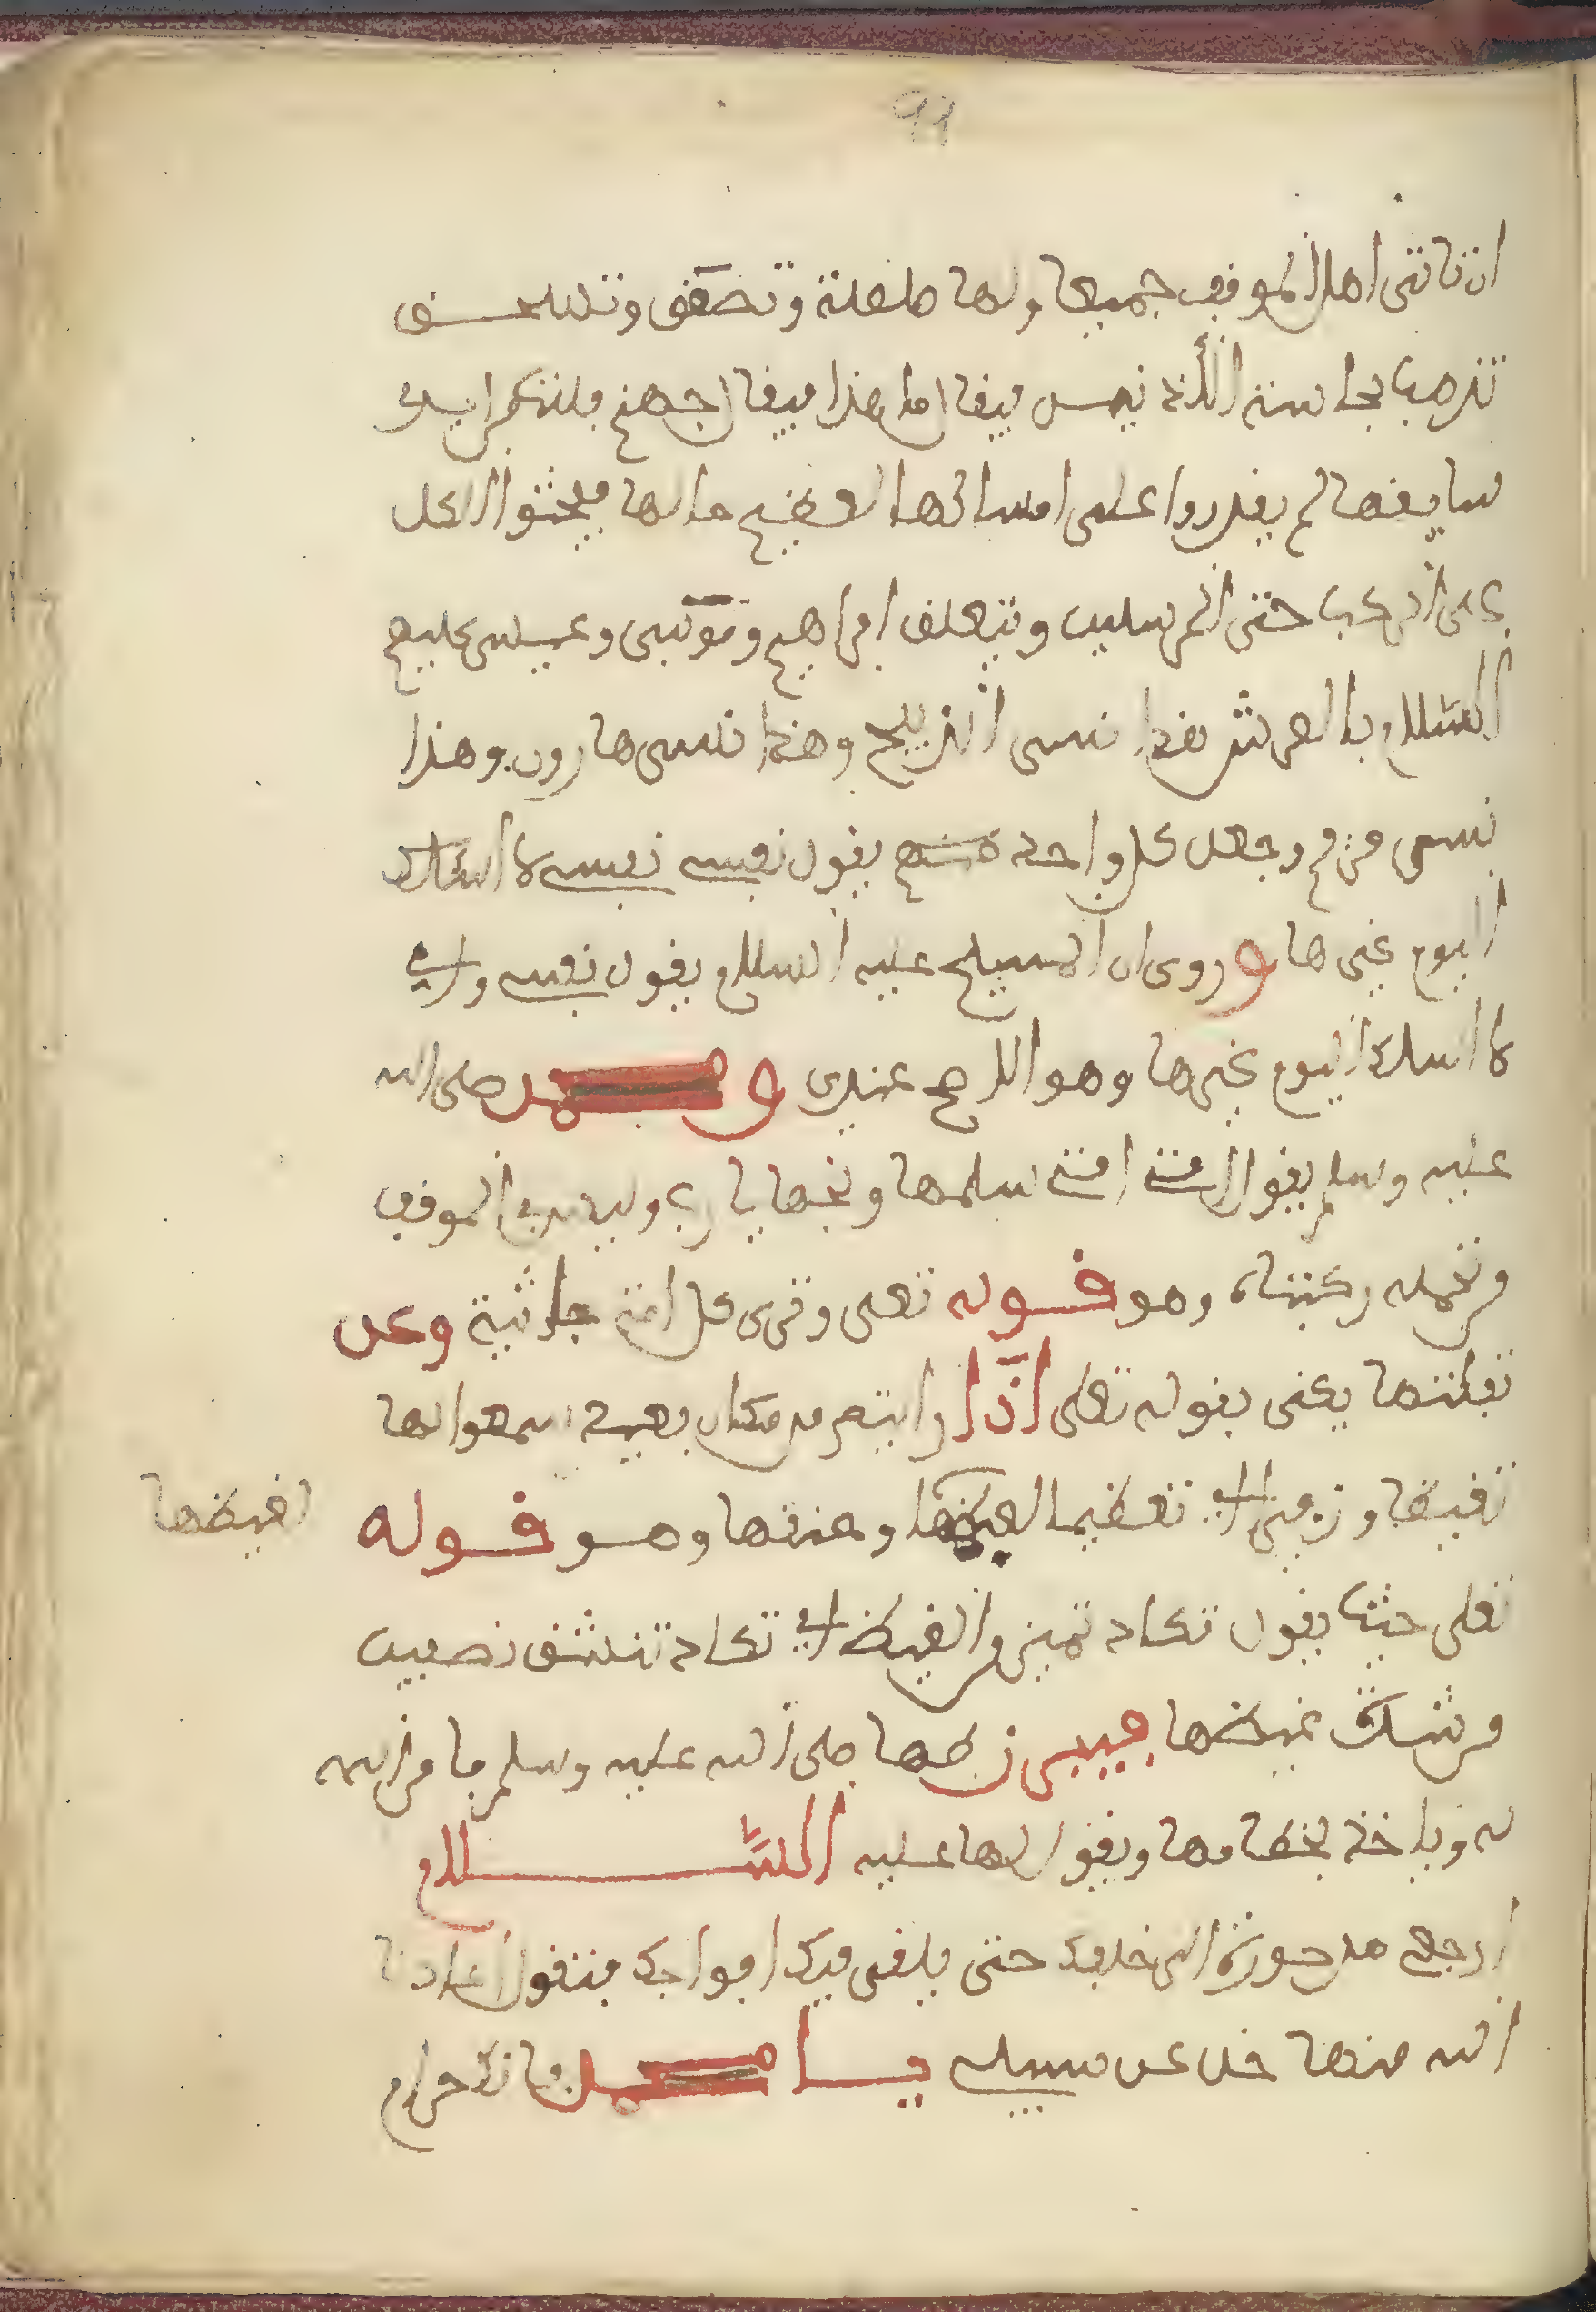 91
ان تاتى اهل الموقف جميعا ولها صلصلة وتصفق وتسحق
تذهب بحاسنة الأذنين فيقال ما هذا فيقال جهنم فلتتكم ايدى
سايفها لم يقدروا على امساكها لعظيم حالها فيجثوا الكل
على الركب حتى المرسلين ويتعلق ابراهيم وموسى وعيسى عليهم
السلام بالعرش هذا نسى الذبيح وهذا نسى هارون وهذا
نسى مريم وجعل كل واحد منهم يقول نفسى نفسى لا اسالك
اليوم غيرها وروى ان المسيح عليه السلام يقول نفسى وامى
لا اسالك اليوم غيرها وهو الارجح عندى ومحمد صلى الله
عليه وسلم يقول امتى امتى سلمها ونجها يا رب وليس فى الموقف
من تحمله ركبتاه وهو قوله تعلى وترى كل امة جاثية وعن
تفلتها يعنى بقوله تعلى اذا رايتهم من مكان بعيد سمعوا لها
تغيظا وزفيرا اى تعظيما لغيظها وحنقها وهو قوله
لغيظها
تعلى حيث يقول تكاد تميز من الغيظ اى تكاد تنشق نصفين
من شدة غيظها فيبرز لها صلى الله عليه وسلم بامر الله
له وياخذ بخطامها ويقول لها عليه السلام
ارجع مدحورة الى خلفك حتى يلقى فيك افواجك فتقول
الله منها خل عن سبيلى يا محمد فانك حرام